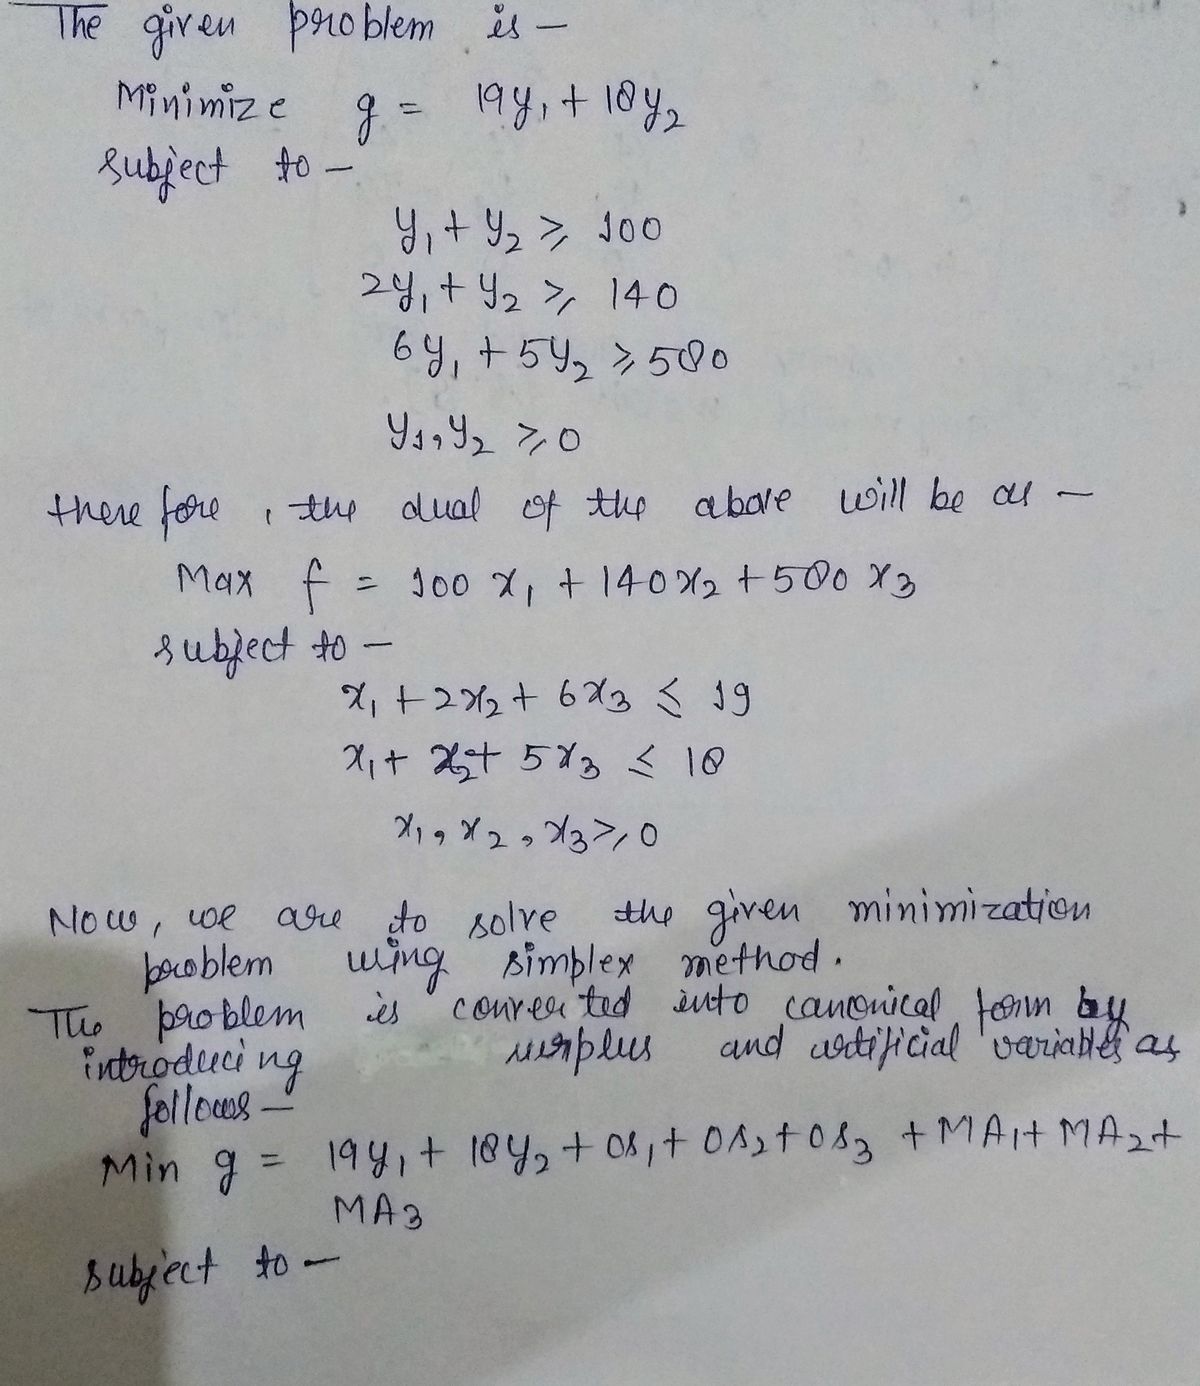 The given problem is —
Minimize g = 19y₁ + 18y₂
subject to —
y₁ + y₂ ≥ 100
2y₁ + y₂ ≥ 140
6y₁ + 5y₂ ≥ 580
y₁, y₂ ≥ 0
therefore, the dual of the above will be as —
Max f = 100 x₁ + 140x₂ + 580 x₃
subject to —
x₁ + 2x₂ + 6x₃ ≤ 19
x₁ + x₂ + 5x₃ ≤ 18
x₁, x₂, x₃ ≥ 0
Now, we are to solve the given minimization
problem using simplex method.
The problem is converted into canonical form by
introducing surplus and artificial variables as
follows —
Min g = 19y₁ + 18y₂ + 0s₁ + 0s₂ + 0s₃ + MA₁ + MA₂ +
MA₃
subject to —